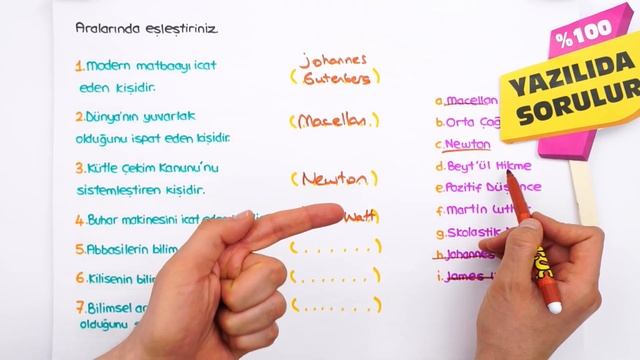 Aralarında eşleştiriniz
1.Modern matbaayı icat
eden kişidir.
Johannes
(Gutenberg)
2.Dünya'nın yuvarlak
olduğunu ispat eden kişidir.
(Macellan.)
3.Kütle Çekim Kanunu'nu
sistemleştiren kişidir.
(Newton)
4.Buhar makinesini icat
Watt)
5.Abbasilerin bilim
(.......)
6.Kilisenin
(.......)
7.Bilimsel
olduğunu
(.......)
a.Macellan
b.Orta
c.Newton
d.Beyt'ül Hikme
e.Pozitif Düşünce
f.Martin Luther
g.Skolastik
h.Johannes
i.James
%100
YAZILIDA
SORULUR